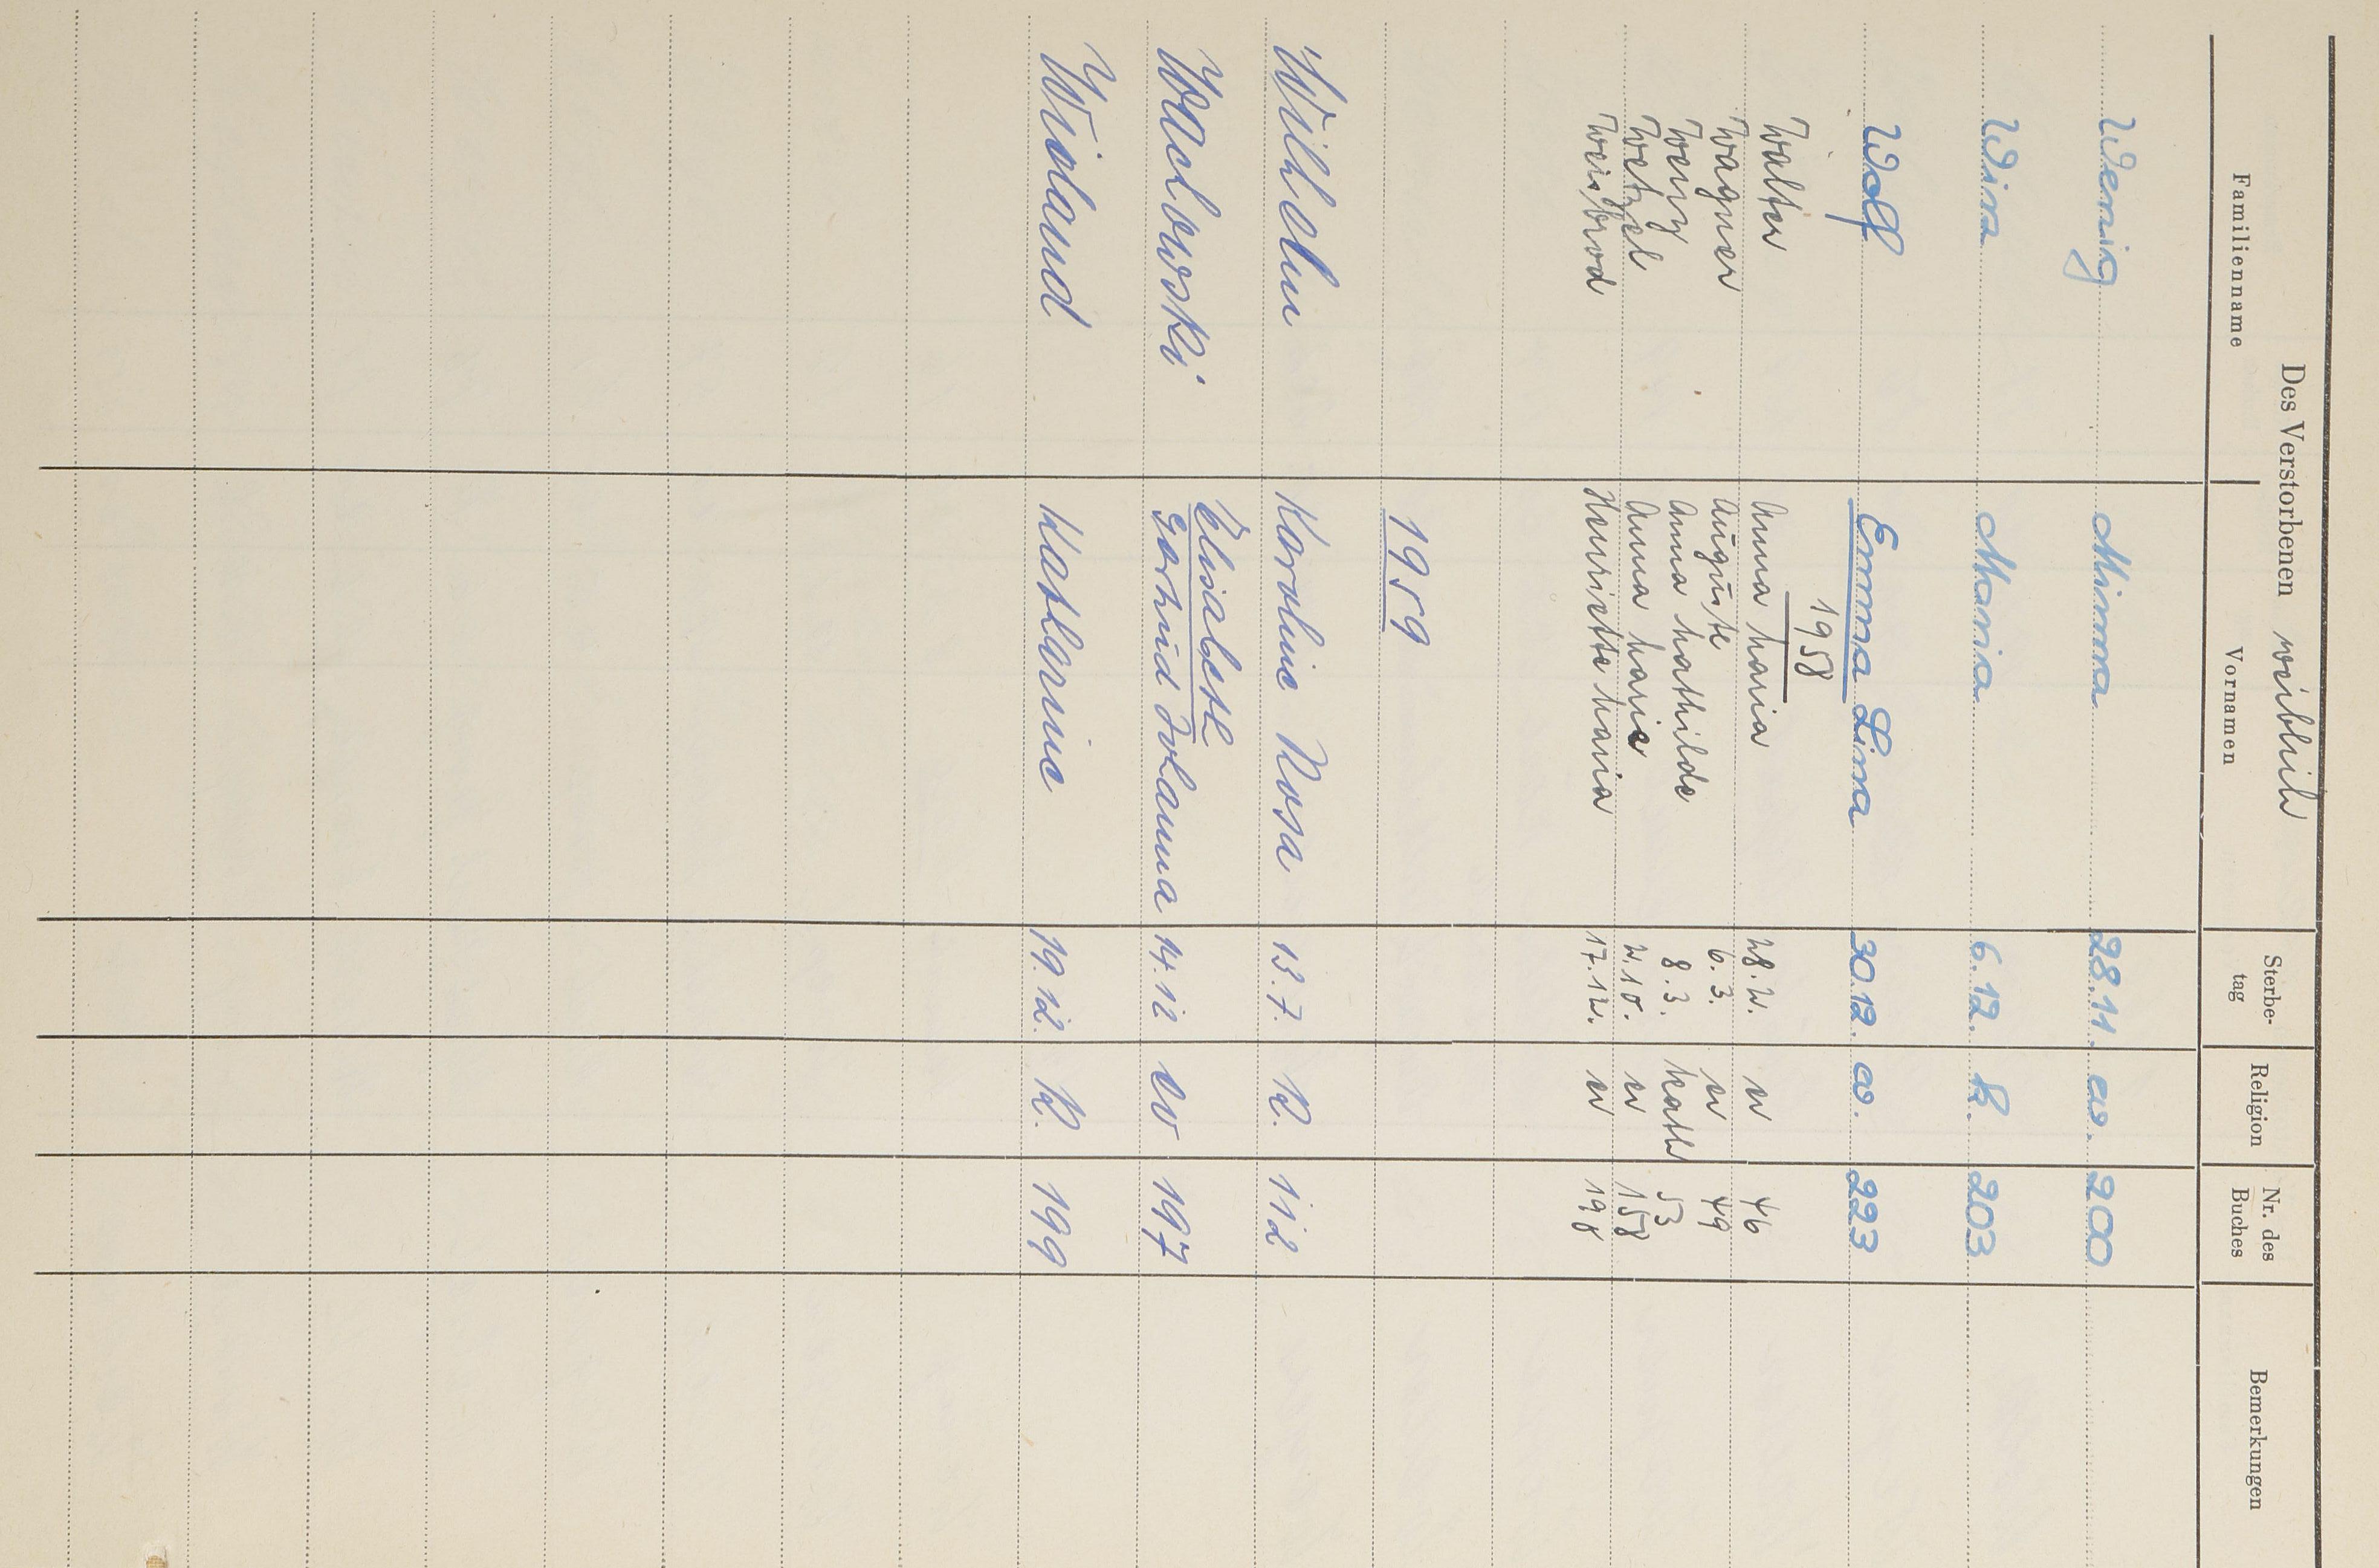 Des Verstorbenen weiblich
Familienname Vornamen Sterbe-tag Religion Nr. des Buches Bemerkungen
Wenig Minna 28.11. ev. 200
Wira Maria 6.12. k. 203
Wolf Emma Lina 30.12. ev. 223
1958
Walter Anna Maria 28.2. ev 46
Wagner Auguste 6.3. ev 49
Weny Anna Mathilde 8.3. kath 53
Wetzel Anna Marie 2.10. ev 158
Weissbrod Henriette Maria 17.12. ev 198
1959
Wilhelm Karoline Rosa 13.7. k. 112
Elisabeth
Wachowski Gertrud Johanna 14.12 ev 197
Wieland Katharine 19.12. k. 199